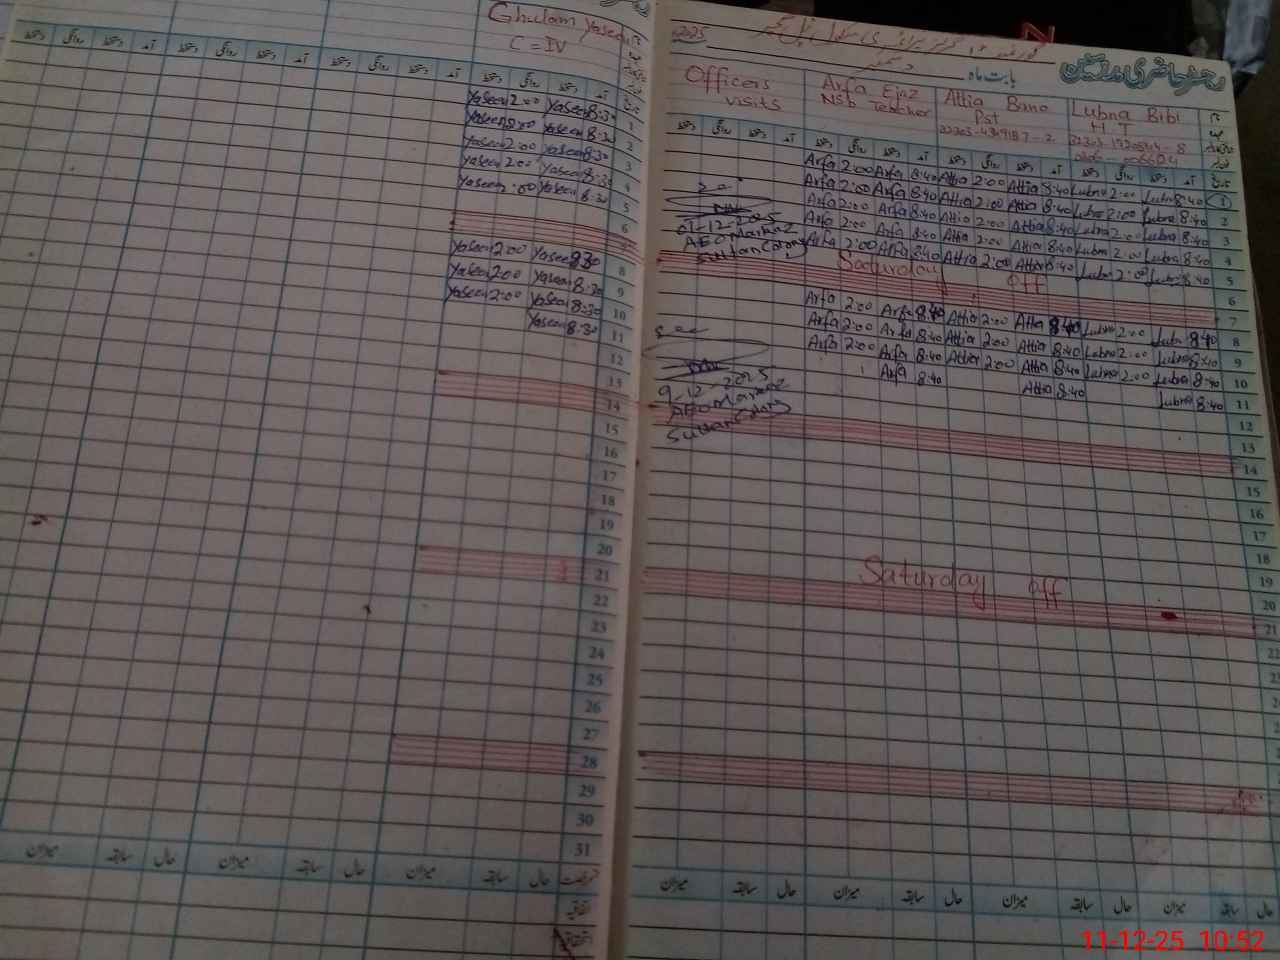 رجسٹر حاضری مدرسین
بابت ماہ دسمبر 2025
Lubna Bibi
H T
Attia Bano
Pst
Arfa Ejaz
Nsb Teacher
Officers
visits
1 Lubna 8:40 Lubna 2:00 Attia 8:40 Attia 2:00 Arfa 8:40 Arfa 2:00
2 Lubna 8:40 Lubna 2:00 Attia 8:40 Attia 2:00 Arfa 8:40 Arfa 2:00
3 Lubna 8:40 Lubna 2:00 Attia 8:40 Attia 2:00 Arfa 8:40 Arfa 2:00
4 Lubna 8:40 Lubna 2:00 Attia 8:40 Attia 2:00 Arfa 8:40 Arfa 2:00
5 Lubna 8:40 Lubna 2:00 Attia 8:40 Attia 2:00 Arfa 8:40 Arfa 2:00
Seen
01-12-2025
AEO Markaz
Sultan Colony
6 Saturday off
7
8 Lubna 8:40 Lubna 2:00 Attia 8:40 Attia 2:00 Arfa 8:40 Arfa 2:00
9 Lubna 8:40 Lubna 2:00 Attia 8:40 Attia 2:00 Arfa 8:40 Arfa 2:00
10 Lubna 8:40 Lubna 2:00 Attia 8:40 Attia 2:00 Arfa 8:40 Arfa 2:00
11 Lubna 8:40 Attia 8:40 Arfa 8:40
Seen
9-12-2025
AEO Markaz
Sultan Colony
12
13
14
15
16
17
18
19
20 Saturday off
21
22
23
میزان سابقہ حال میزان سابقہ حال میزان سابقہ حال
Ghulam Yaseen
C = IV
آمد دستخط روانگی دستخط
1 8:30 Yaseen 2:00 Yaseen
2 8:30 Yaseen 2:00 Yaseen
3 8:30 Yaseen 2:00 Yaseen
4 8:30 Yaseen 2:00 Yaseen
5 8:30 Yaseen 2:00 Yaseen
6
7
8 8:30 Yaseen 2:00 Yaseen
9 8:30 Yaseen 2:00 Yaseen
10 8:30 Yaseen 2:00 Yaseen
11 8:30 Yaseen
12
13
14
15
16
17
18
19
20
21
22
23
24
25
26
27
28
29
30
31
حال سابقہ میزان حال سابقہ میزان حال سابقہ میزان
اتفاقیہ
11-12-25 10:52